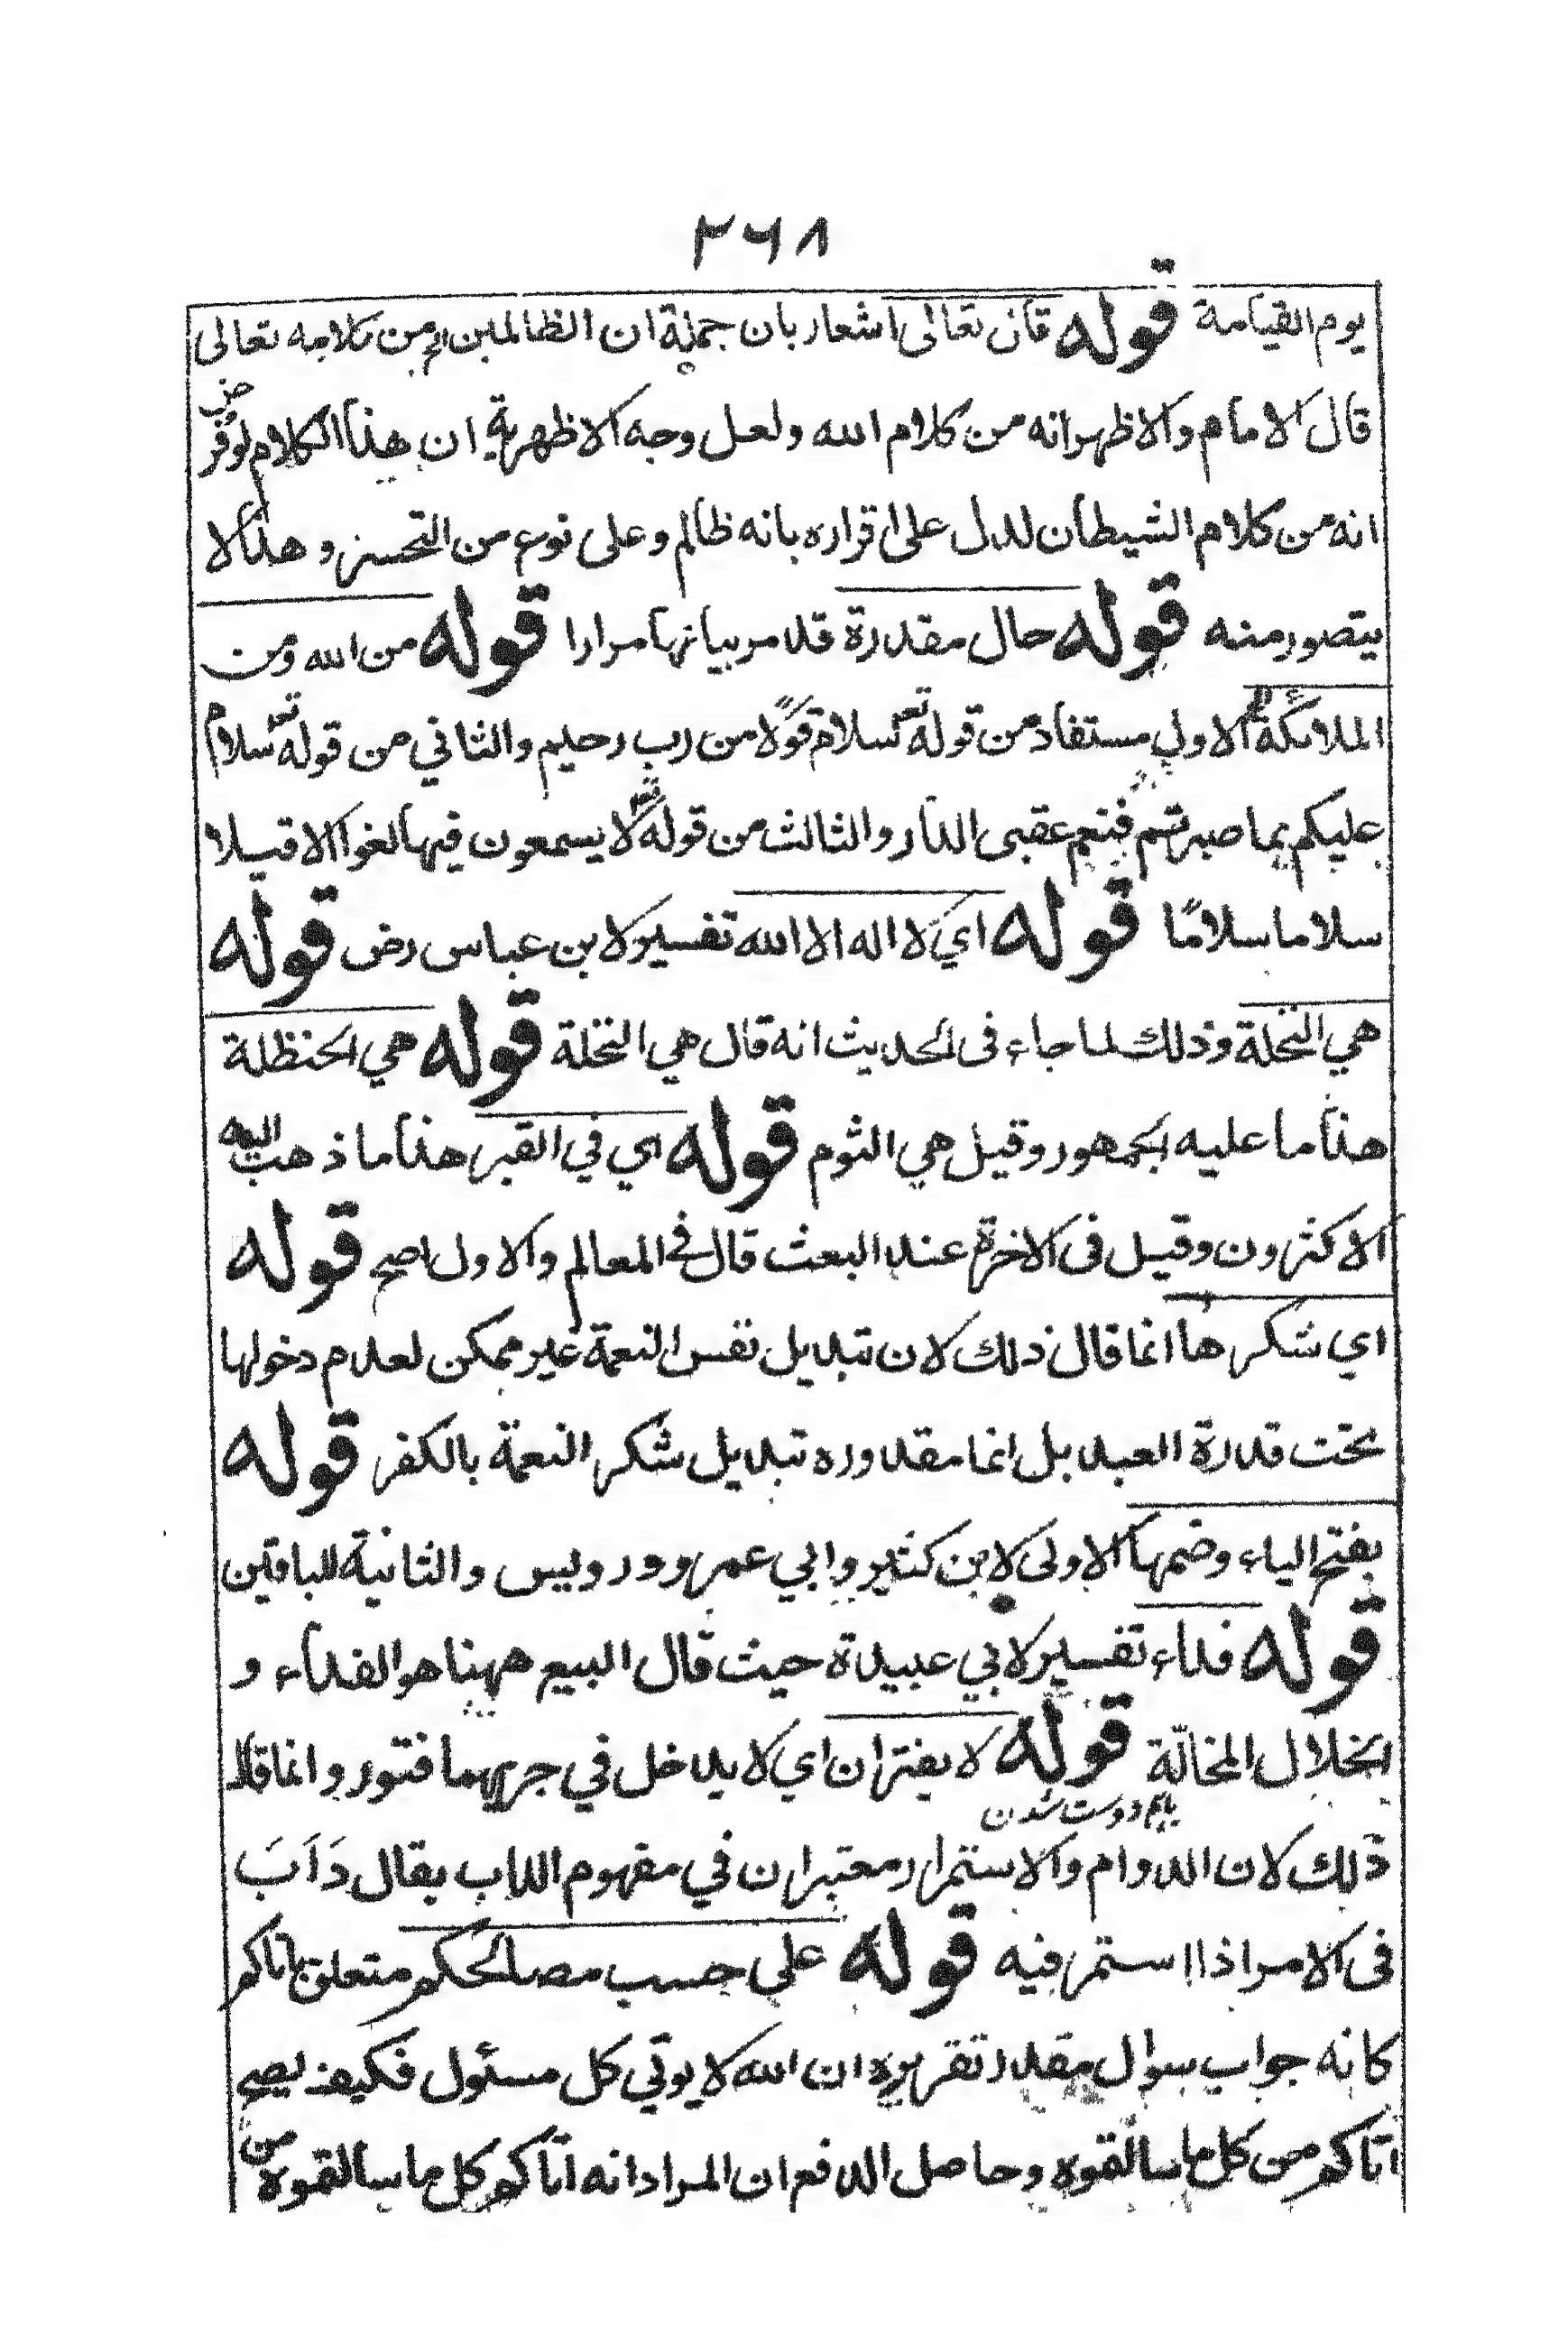 ٢٦٨
يوم القيامة قوله قال تعالى اشعار بان جملة ان الظالمين الخ من كلامه تعالى
قال الامام والاظهر انه من كلام الله ولعل وجه الاظهرية ان هذا الكلام لو فرض
انه من كلام الشيطان لدل على اقراره بانه ظالم وعلى نوع من التحسر و هذا لا
يتصور منه قوله حال مقدرة قد مر بيانها مرارا قوله من الله ومن
الملائكة الاول مستفاد من قوله تعـ سلام قولًا من رب رحيم والثاني من قوله تعـ سلام
عليكم بما صبرتم فنعم عقبى الدار والثالث من قوله تعـ لا يسمعون فيها لغوا الا قيلا
سلاما سلامًا قوله اي لا اله الا الله تفسير لابن عباس رض قوله
هي النخلة وذلك لما جاء فى الحديث انه قال هي النخلة قوله هي الحنظلة
هذا ما عليه الجمهور وقيل هي الثوم قوله اي في القبر هذا ما ذهب اليه
الاكثرون وقيل فى الاخرة عند البعث قال في المعالم والاول اصح قوله
اي شكرها انما قال ذلك لان تبديل نفس النعمة غير ممكن لعدم دخولها
تحت قدرة العبد بل انما مقدوره تبديل شكر النعمة بالكفر قوله
بفتح الياء وضمها الاولى لابن كثير وابي عمرو ورويس والثانية للباقين
قوله فداء تفسير لابي عبيدة حيث قال البيع ههنا هو الفداء و
الخلال المخالّة قوله لا يفتران اي لا يدخل في جريهما فتور وانما قال
باهم دوست شدن
ذلك لان الدوام والاستمرار معتبران في مفهوم الداب يقال دَاَبَ
فى الامر اذا استمر فيه قوله على حسب مصالحكم متعلق باتاكم
كانه جواب سوال مقدر تقريره ان الله لا يوتي كل مسئول فكيف يصح
اتاكم من كل ما سالتموه وحاصل الدفع ان المراد انه اتاكم كل ما سالتموه من